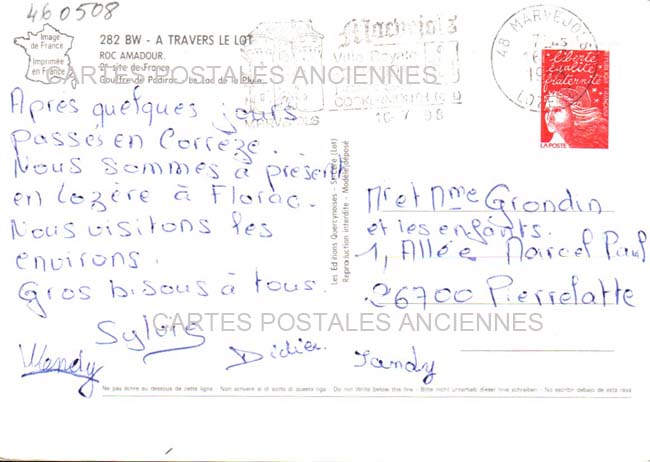 460508
Image
de France
Imprimée
en France
282 BW - A TRAVERS LE LOT
ROC AMADOUR.
2e site de France.
Gouffre de Padirac. Le Lac de la Pluie.
CARTES POSTALES ANCIENNES
Marvejols
Ville Royale
MARVEJOLS
10-7-98
48 MARVEJOLS
LOZERE
liberté
égalité
fraternité
LA POSTE
Après quelques jours
Passés en Corrèze.
Nous sommes à présent
en Lozère à Florac.
Nous visitons les
environs.
Gros bisous à tous.
Sylvie
Wendy
Didier.
Sandy
Les Éditions Quercynoises - (Lot)
Reproduction interdite - Modèle déposé
Mr et Mme Grondin
et les enfants.
1, Allée Marcel Paul
26700 Pierrelatte
CARTES POSTALES ANCIENNES
Ne pas écrire au dessous de cette ligne - Non scrivere si di sotto di questa riga Do not Write below this line - Bitte nicht unterhalb dieser linie schreiben - No escribir debajo de esta raya